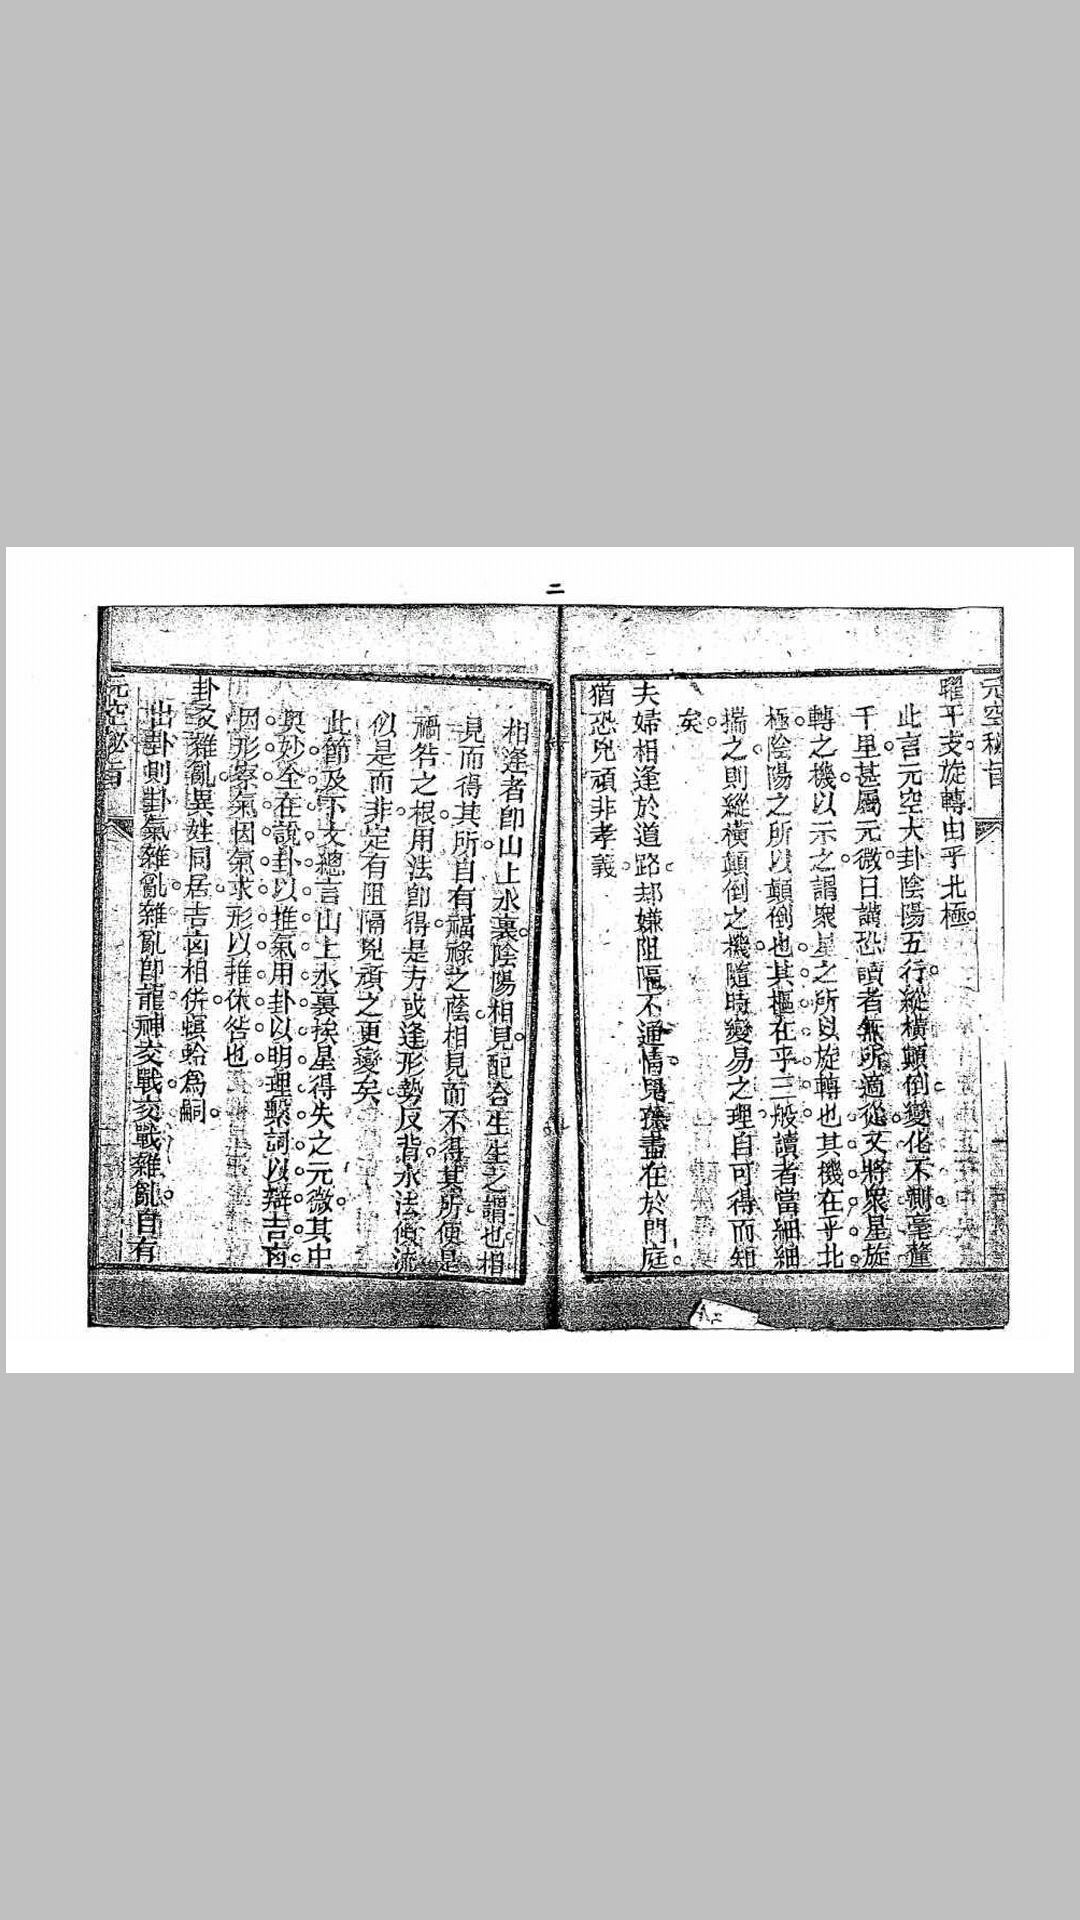 二
元空秘旨
曜干支旋轉由乎北極
此言元空大卦陰陽五行縱橫顛倒變化不測毫釐
千里甚屬元微日讀恐讀者無所適從文將衆星旋
轉之機以示之謂衆星之所以旋轉也其機在乎北
極陰陽之所以顛倒也其樞在乎三般讀者當細細
揣之則縱橫顛倒之機隨時變易之理自可得而知
矣
夫婦相逢於道路却嫌阻隔不通情兒孫盡在於門庭
猶恐兇頑非孝義
相逢者卽山上水裏陰陽相見配合生生之謂也相
見而得其所自有福祿之蔭相見而不得其所便是
禍咎之根用法卽得是方或逢形勢反背水法傾流
似是而非定有阻隔兇頑之更變矣
此節及下文總言山上水裏挨星得失之元微其中
奧妙全在說卦以推氣用卦以明理繫詞以辯吉凶
因形察氣因氣求形以推休咎也
卦爻雜亂異姓同居吉凶相併螟蛉爲嗣
出卦則卦氣雜亂雜亂卽龍神交戰交戰雜亂自有
元空秘旨